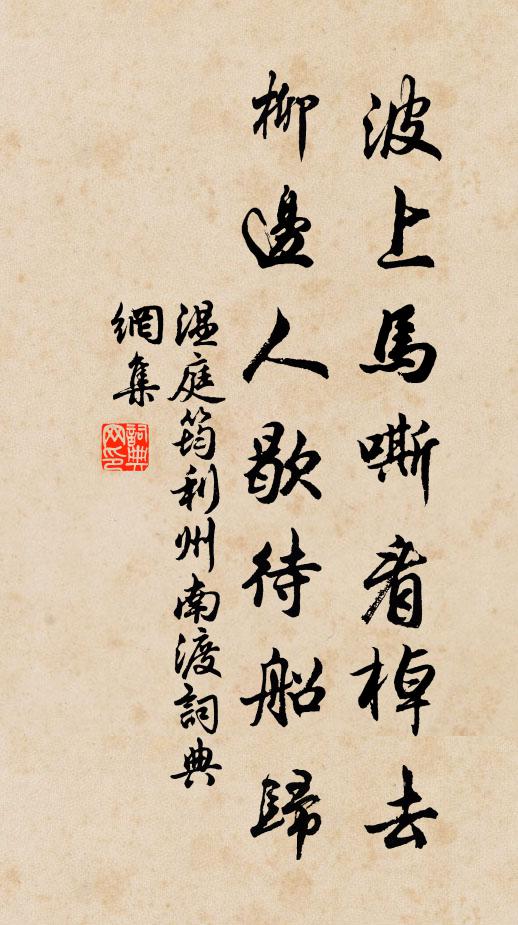 波上馬嘶看棹去
柳邊人歇待船歸
温庭筠利州南渡詞典
網集
詞典
网印